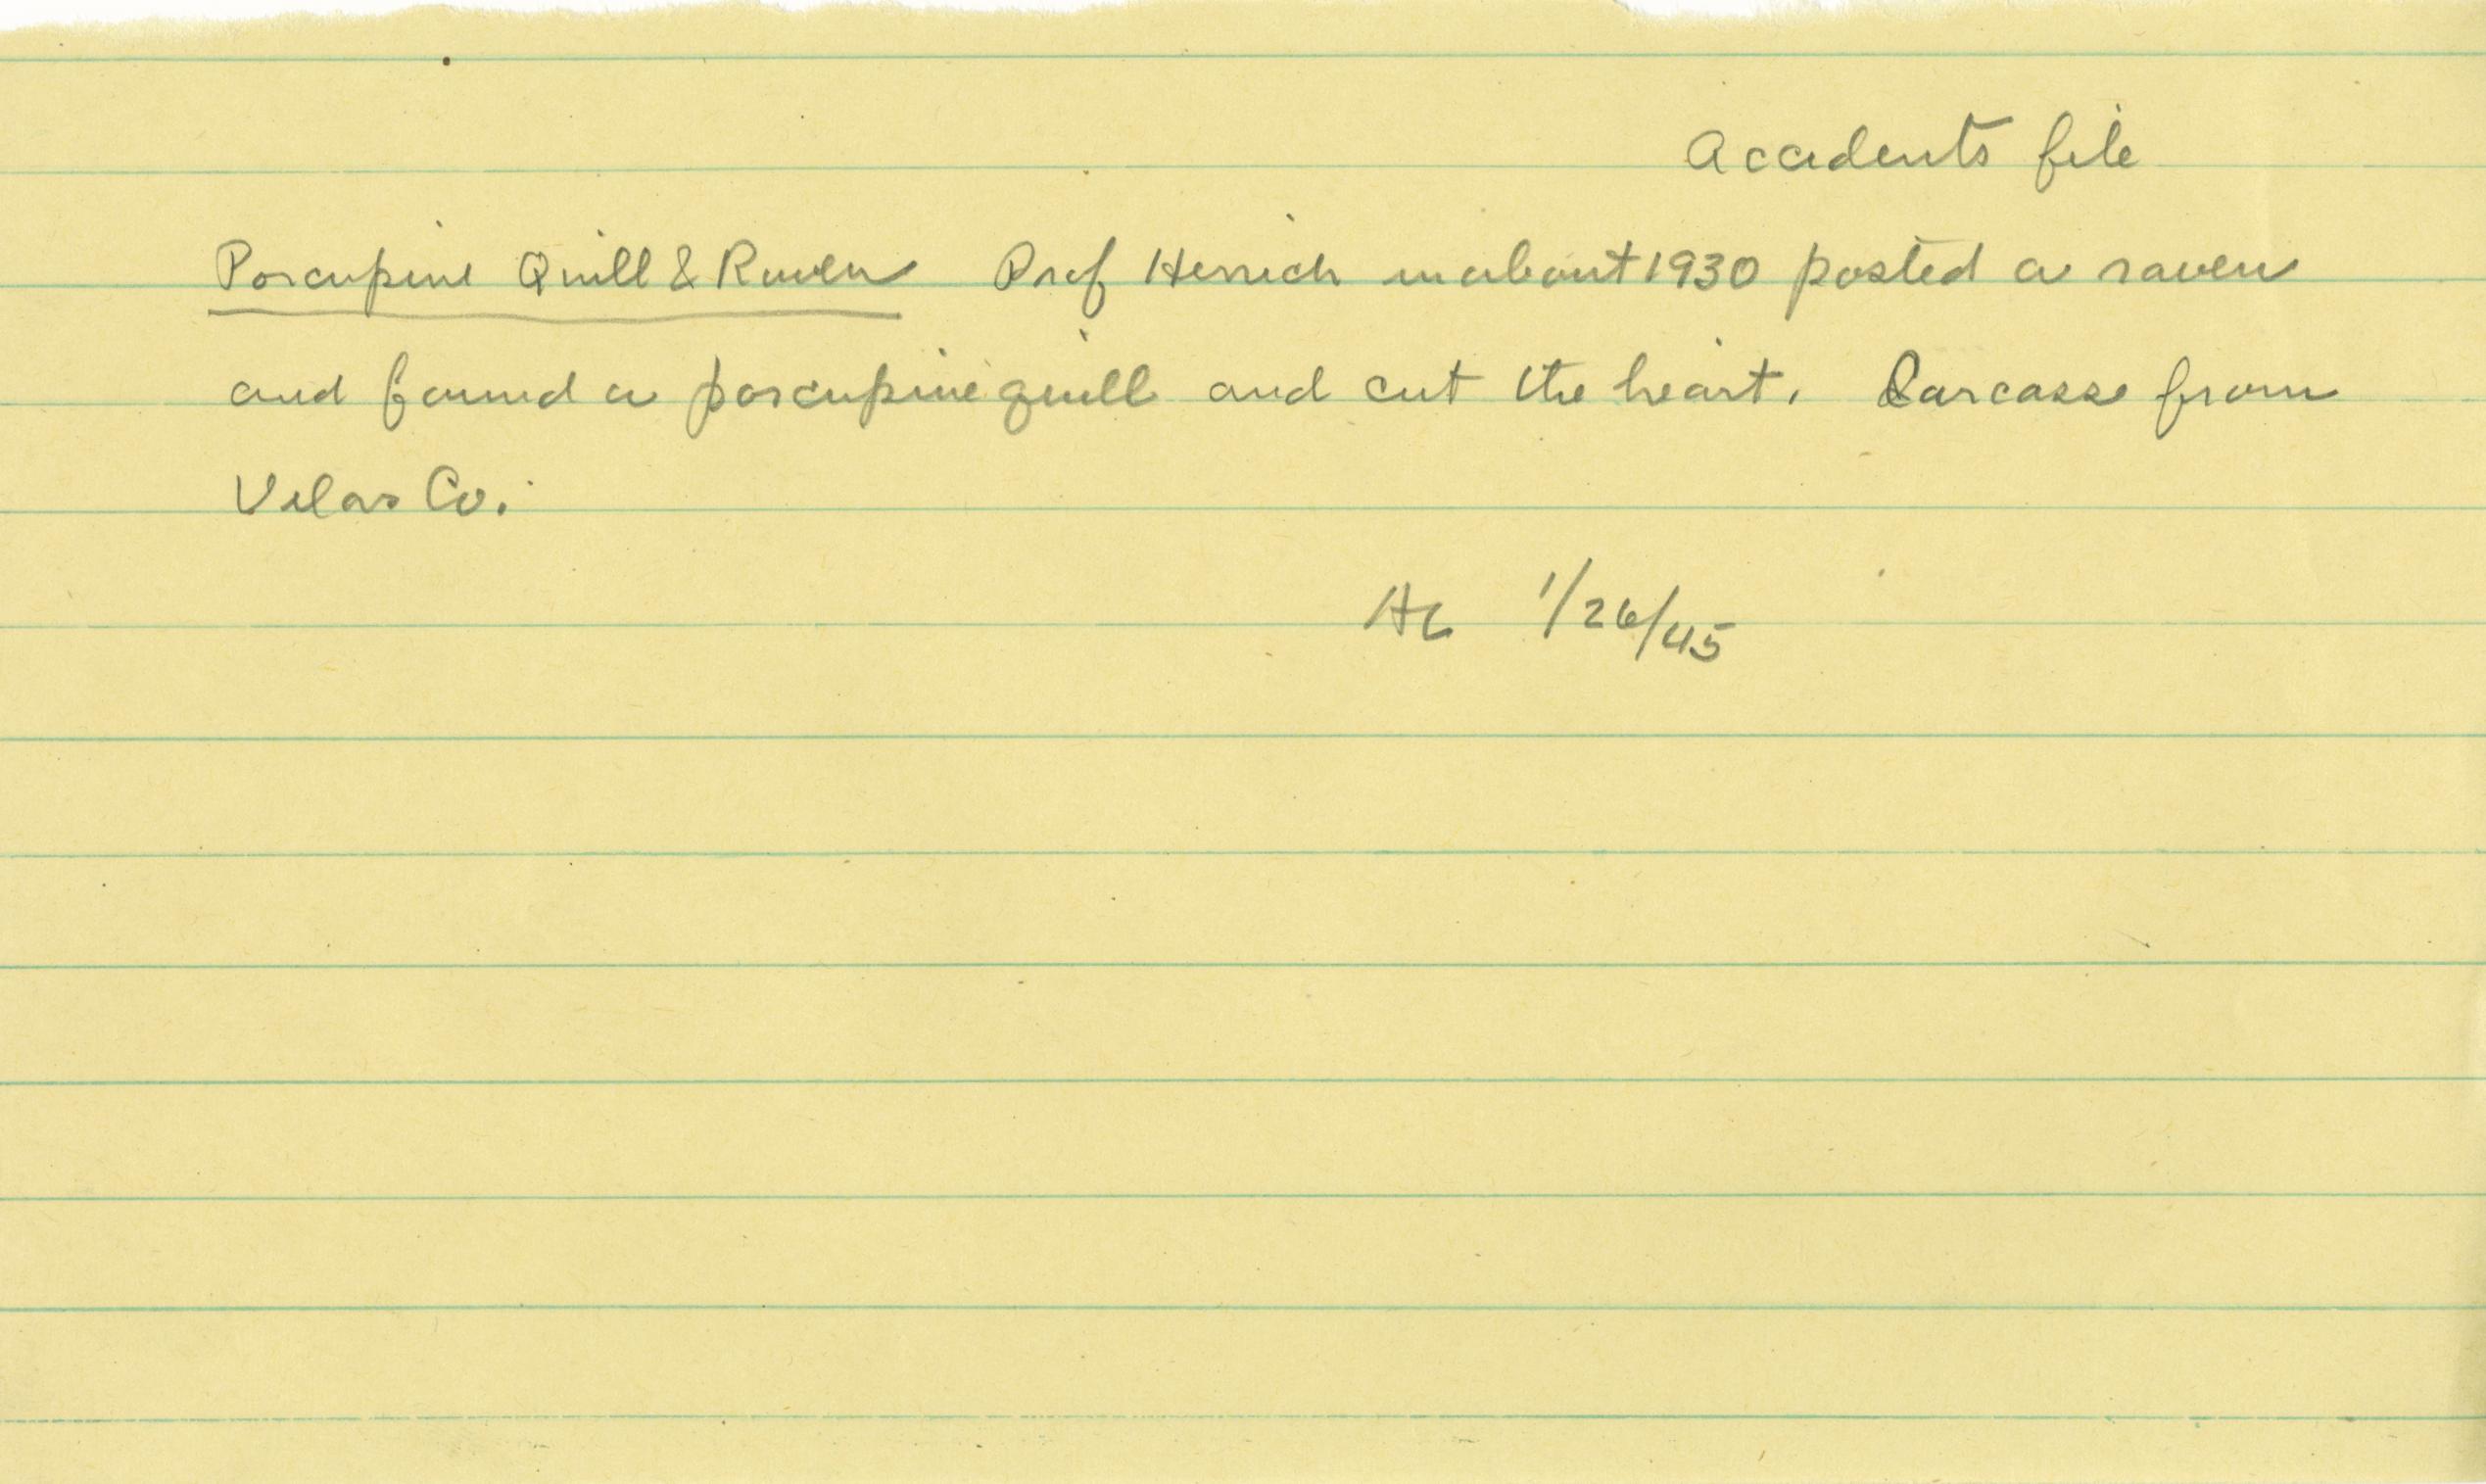 Accidents file
Porcupine Quill & Raven Prof Herrick in about 1930 posted a raven
and found a porcupine quill and cut the heart. Carcass from
Vilas Co.
AL 1/26/45